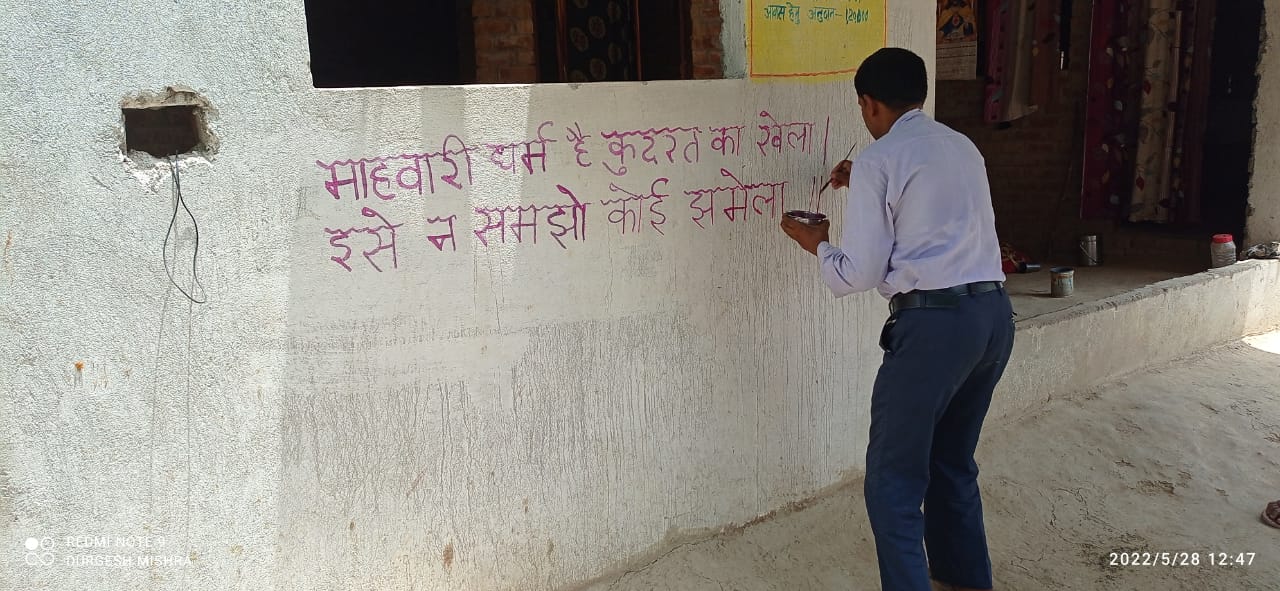 आवास हेतु अनुदान - 120000
माहवारी धर्म है कुदरत का खेला।
इसे न समझो कोई झमेला ॥
REDMI NOTE 9
DURGESH MISHRA
2022/5/28 12:47